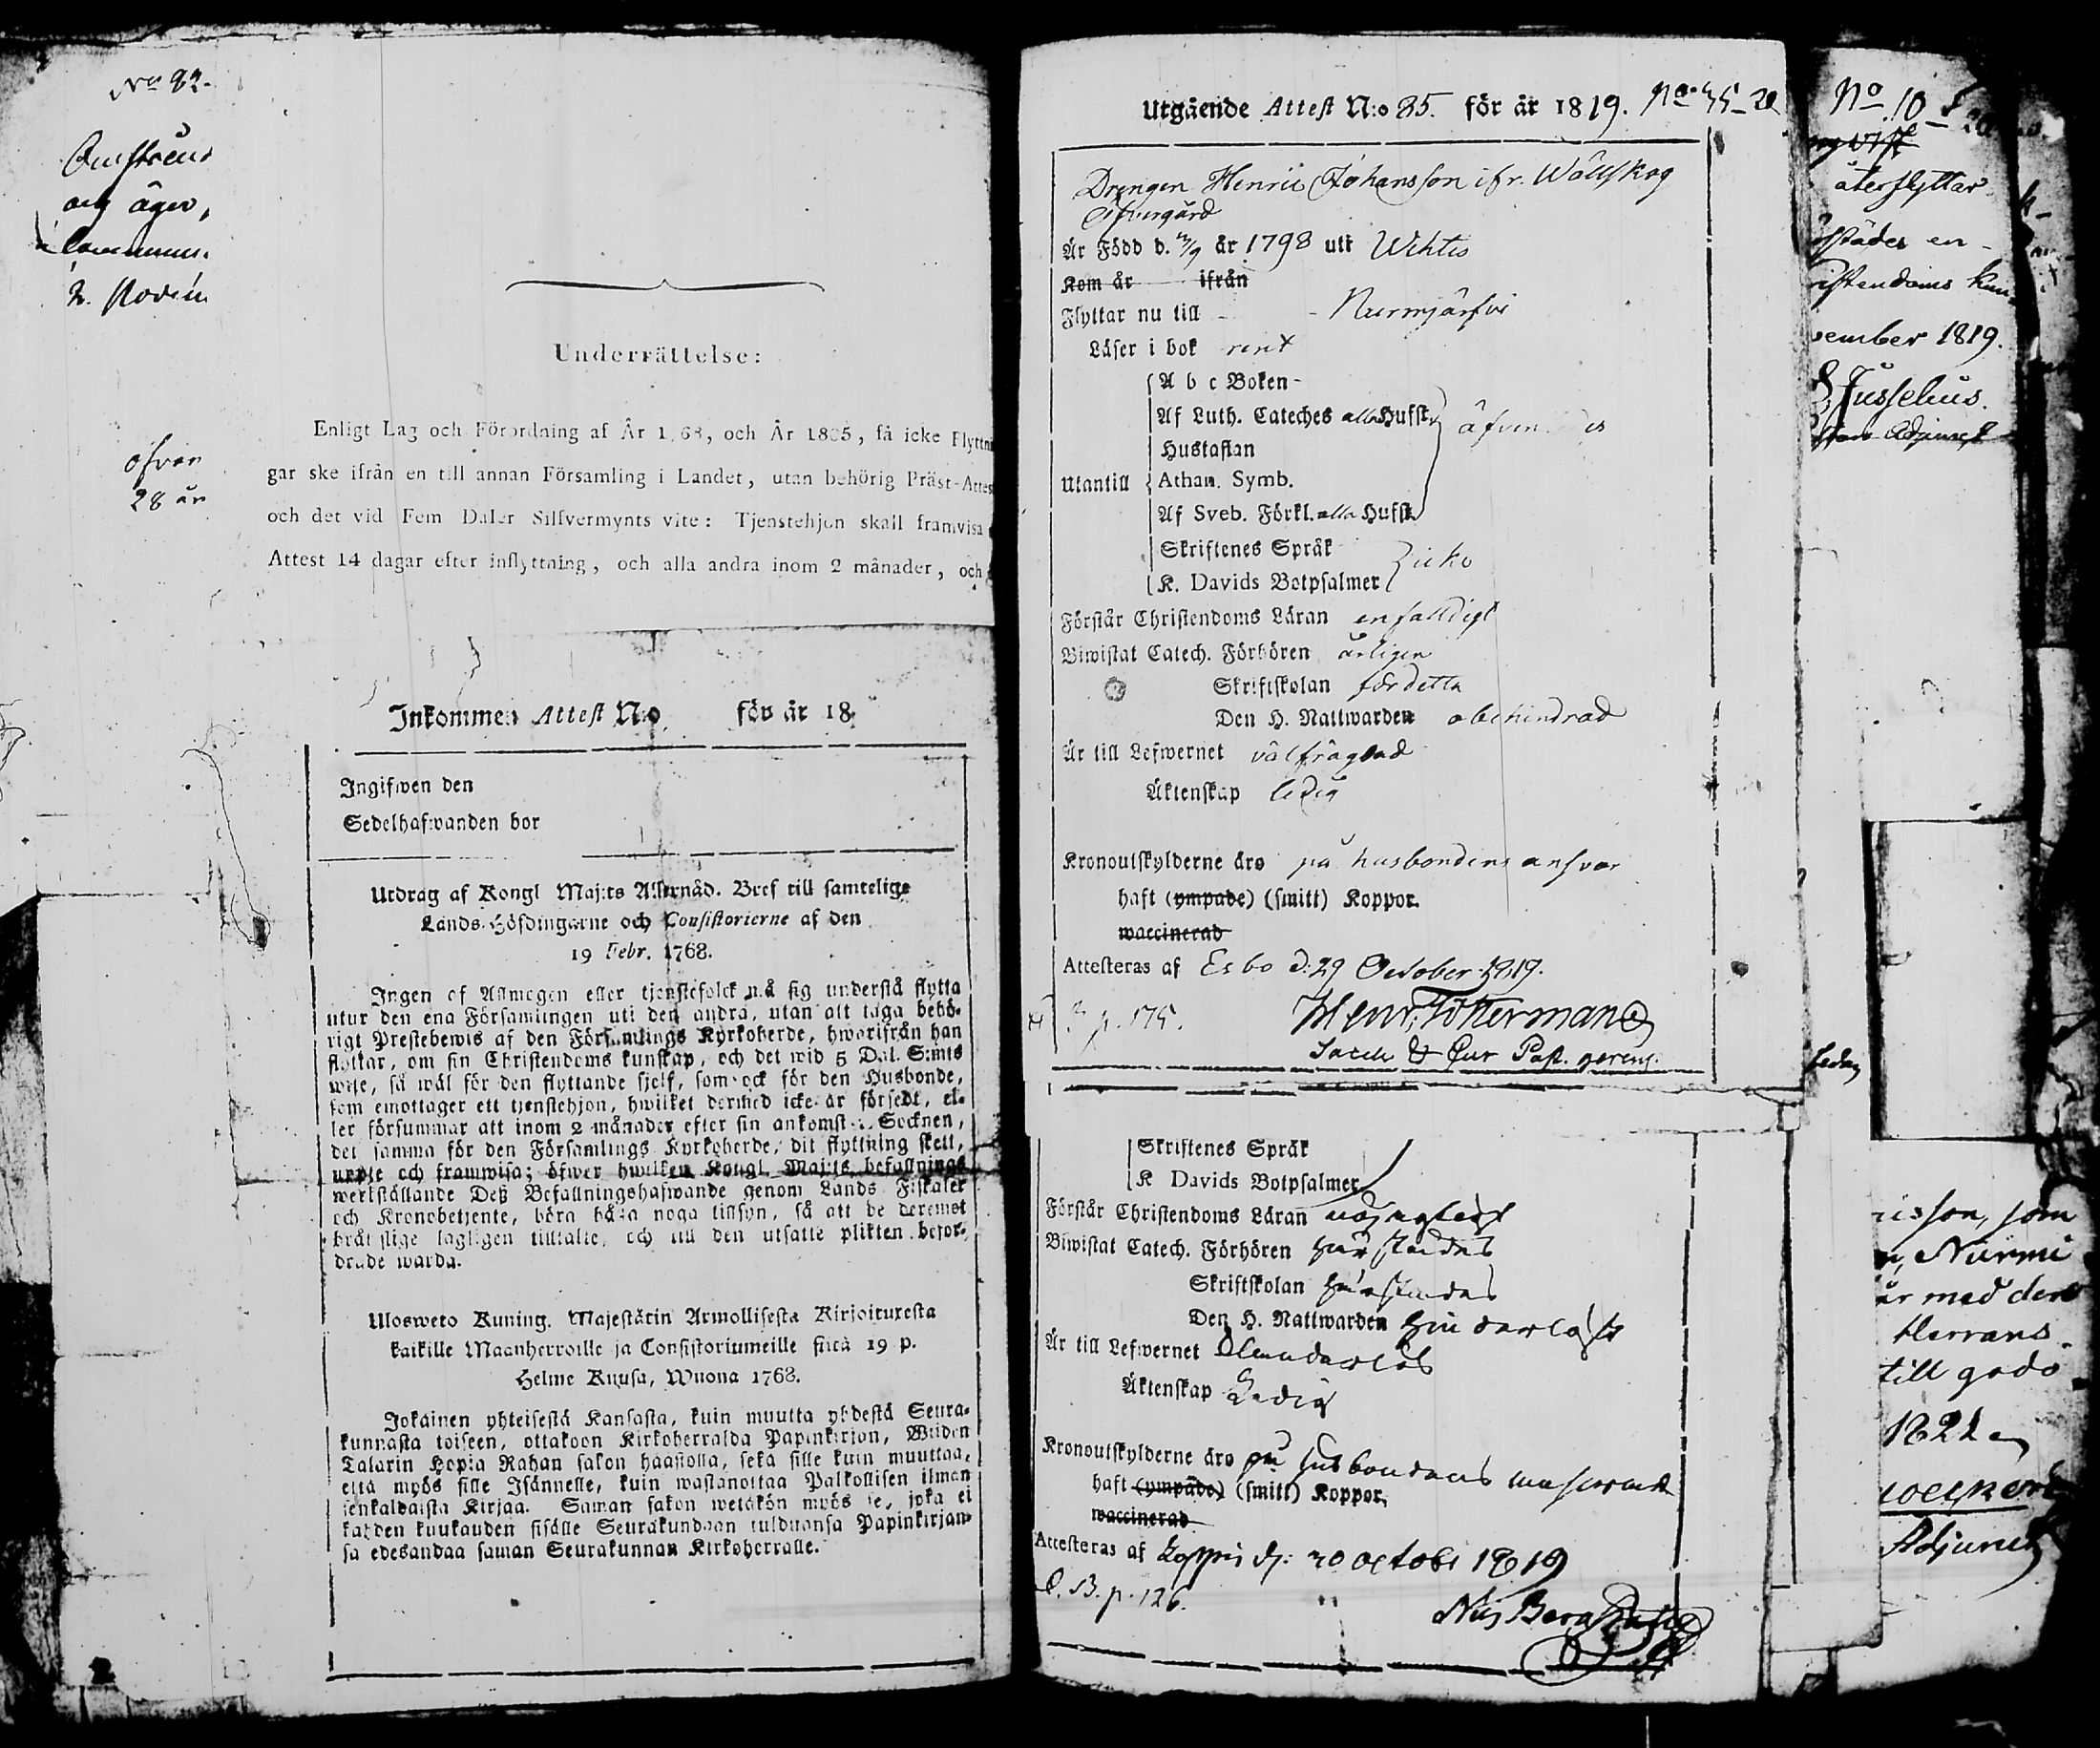 No 92.
äger,
ofvan
28 år
Underrättelse:
Enligt Lag och Förordning af År 1768, och År 1805, få icke Flyttnin
gar ske ifrån en till annan Församling i Landet, utan behörig Präst-Attes
och det vid Fem Daler Silfvermynts vite: Tjenstehjon skall framvisa
Attest 14 dagar efter inflyttning, och alla andra inom 2 månader, och
Inkommen Attest N:o för år 18
Ingifwen den
Sedelhafwanden bor
Utdrag af Kongl Maj:ts Allernåd. Bref till samtelige
Lands-Höfdingarne och Consistorierne af den
19 Febr. 1768.
Ingen af Allmogen eller tjenstefolck må sig understå flytta
utur den ena Församlingen uti den andra, utan att taga behö-
rigt Prestebewis af den Församlings Kyrkoherde, hwarifrån han
flyttar, om sin Christendoms kunskap, och det wid 5 Dal. S:mts
wite, så wäl för den flyttande sjelf, som ock för den Husbonde,
som emottager ett tjenstehjon, hwilket dermed icke är försedt, el-
ler försummar att inom 2 månader efter sin ankomst i Socknen,
det samma för den Församlings Kyrkoherde, dit flyttning skett,
uppte och framwisa; öfwer hwilken Kongl. Maj:ts befallnings
werkställande Deß Befallningshafwande genom Lands Fiskaler
och Kronobetjente, böra hafwa noga tillsyn, så att de deremot
bråtslige lagligen tilltalte, och till den utsatte plikten befor-
drade warda.
Ulosweto Kuning. Majestätin Armollisesta Kirjoituresta
kaikille Maanherroille ja Consistoriumeille siitä 19 p.
Helme Kuusa, Wuona 1768.
Jokainen yhteisestä Kansasta, kuin muutta yhdestä Seura-
kunnasta toiseen, ottakoon Kirkoherralda Papinkirjan, Wiiden
Talarin Hopia Rahan sakon haastolla, sekä sille kuin muuttaa,
että myös sille Isännelle, kuin wastanottaa Palkollisen ilman
senkaldaista Kirjaa. Saman sakon wetäkön myös se, joka ei
kahden kuukauden sisälle Seurakundaan tulduansa Papinkirjan-
sa edesandaa saman Seurakunnan Kirkoherralle.
Utgående Attest N:o 85. för år 1819. No. 35-20
Drengen Henric Johansson ifr. Wällskog
Öfvergård
Är Född d. 13/9 år 1798 uti Wihtis
Kom år ifrån
Flyttar nu till - - Nurmijärfvi
Läser i bok rent
A b c Boken -
Af Luth. Cateches alla Hufst.
Hustaflan
Utantill Athan. Symb.
Af Sveb. Förkl. alla Hufst.
Skriftenes Språk
K. Davids Botpsalmer icke
Förstår Christendoms Läran enfalldigt
Biwistat Catech. Förhören årligen
Skriftskolan för detta
Den H. Nattwarden obehindrad
Är till Lefwernet välfrägdad
Äktenskap ledig
Kronoutskylderne äro på husbondens ansvar
haft (ympade) (smitt) Koppor.
waccinerad
Attesteras af Esbo d. 29 October 1819.
p. 175. Henr.
Past. gerens.
Skriftenes Språk
K Davids Botpsalmer
Förstår Christendoms Läran nöjagtigt
Biwistat Catech. Förhören härstädes
Skriftskolan härstädes
Den H. Nattwarden hinderlöst
Är till Lefwernet
Äktenskap Ledig
Kronoutskylderne äro på husbondens
haft (ympade) (smitt) Koppor,
waccinerad
Attesteras af Loppis d: 20 octobr 1819
p. 126.
Nils
No 10
återflyttar
städes en -
istendoms kun
vember 1819.
Jusselius.
Adjunct
Ledig
risson, som
Nurmi
är med dess
Herrans
till godo
1821
Adjunct